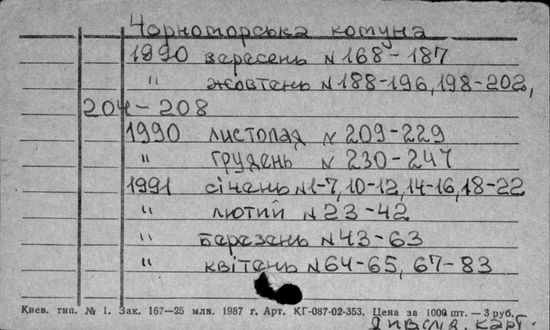 Чорноморська комуна
1990 вересень N 168-187
" жовтень N 188-196, 198-202,
204-208
1990 листопад N 209-229
" грудень N 230-247
1991 січень N 1-7, 10-12, 14-16, 18-22
" лютий N 23-42
" березень N 43-63
" квітень N 64-65, 67-83
Києв. тип. № 1. Зак. 167—25 млн. 1987 г. Арт. КГ-087-02-353. Цена за 1000 шт. — 3 руб.